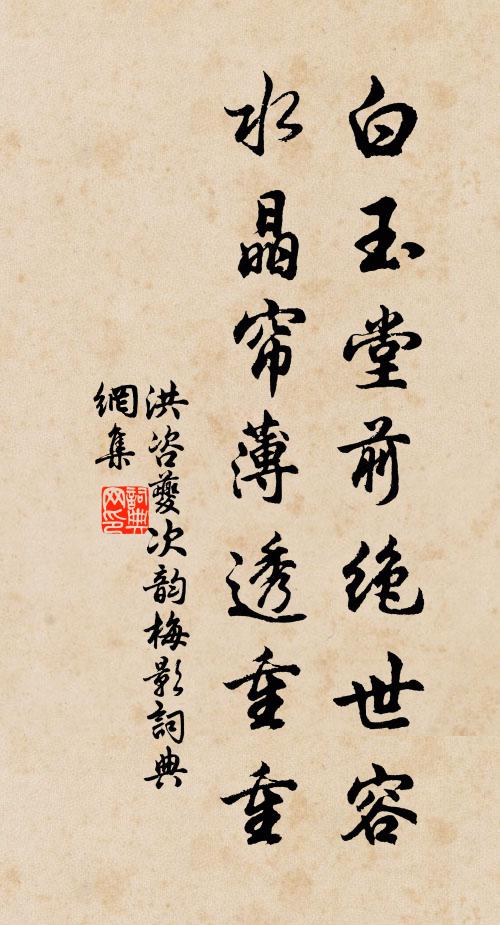 白玉堂前绝世容
水晶帘薄透重重
洪咨夔次韵梅影詞典
網集
詞典
网印